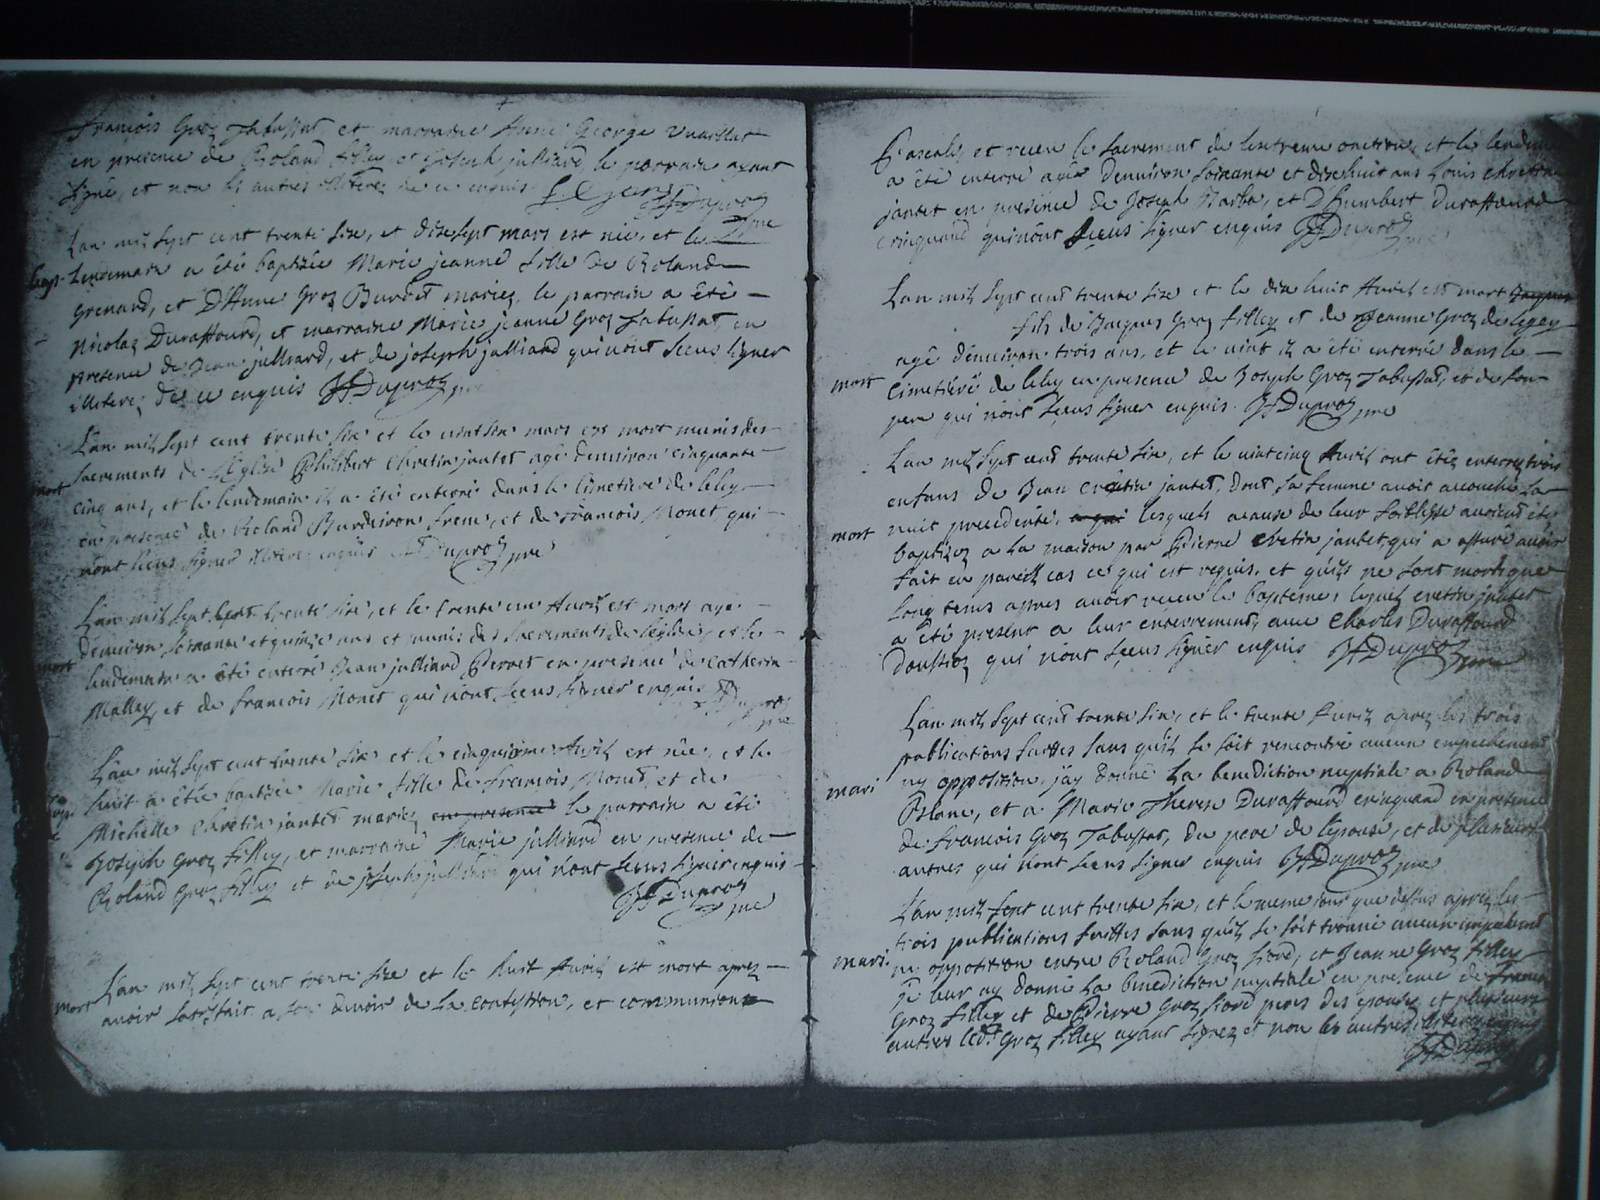 François Groz Tabussat et marraine Anne George Vuaillat
en presence de Roland filley et Joseph julliard le parrain ayant
signé, et non les autres illiterez de ce enquis
JF Duproz
pre
Lan mil sept cent trente six, et dixsept mars est née, et le
bapt. Lendemain a été baptisée Marie jeanne fille de Roland
Grenard, et D'Anne Groz Burdet mariez, le parrain a été
Nicolas Duraffourd, et marraine Marie jeanne Groz Tabussat, en
presence de Jean julliard, et de joseph julliard qui n'ont sceus signer
illiterez de ce enquis JF Duproz pre
L'an mil sept cent trente six et le vint six mars est mort munis des
mort sacrements de l'Eglise Philibert Chretin jantet agé denviron cinquante
cinq ans, et le lendemain il a été enterré dans le Cimetiere de leley
en presence de Roland Burdeiron frere, et de François Monet qui
nont sceus signer illiterez enquis JF Duproz pre
L'an mil sept cent trente six, et le trente un Avril est mort agé
d'environ soixante et quinze ans et munis des sacrements de l'eglise, et le
mort lendemain a été enterré Jean julliard Perret en presence de Catherin
Mallay, et de françois Monet qui n'ont sceus signer enquis JF Duproz
pre
L'an mil sept cent trente six et le cinquieme Avril est née, et le
huit a étée baptisée Marie fille de françois Monet et de
Michelle Chretin jantet mariez en presence le parrain a été
Joseph Groz filley, et marraine Marie julliard en presence de
Roland Groz filley et de joseph julliard qui n'ont sceus signer enquis
JF Duproz
pre
L'an mil sept cent trente six et le huit Avril est mort apres
mort avoir satisfait a son devoir de la confession, et communion
Pascales et receu le sacrement de lextreme onction, et le lendemain
a été enterré agé denviron soixante et dixhuit ans Louis chretin
jantet en presence de Joseph Barba, et D'humbert Duraffourd
crinquand qui n'ont sceus signer enquis JF Duproz
pre
L'an mil sept cent trente six et le dix huit Avril est mort Jacques
fils de Jacques Groz filley et de Jeanne Groz de legey
agé d'environ trois ans, et le vint il a été enterré dans le
mort Cimetiére de leley en presence de Joseph Groz Tabussat, et de son
pere qui n'ont sceus signer enquis. JF Duproz pre
L'an mil sept cent trente six, et le vintcinq Avril ont étéz enterrez trois
enfans de Jean cretin jantet, dont sa femme avoit accouché la
mort nuit precedente, a qui lesquels acause de leur foiblesse avoient été
baptisez a la maison par Pierre cretin jantet qui a assuré avoir
fait en pareil cas ce qui est requis, et qu'ils ne sont morts que
long tems apres avoir receu le baptême, lequel cretin jantet
a été present a leur enterrement, avec Charles Duraffourd
Doussioz qui n'ont sceus signer enquis JF Duproz
pre
L'an mil sept cent trente six, et le trente Avril aprez les trois
publications faittes sans qu'il se soit rencontré aucun empechement
mari ny opposition, j'ay donné la benediction nuptiale a Roland
Blanc, et a Marie Therese Duraffourd crinquand en presence
de François Groz Tabussat, du pere de l'epouse, et de plusieurs
autres qui n'ont sceus signer enquis JF Duproz pre
L'an mil sept cent trente six, et le meme jour que dessus aprez les
trois publications faittes sans qu'il se soit trouvé aucun empechement
mari. ny opposition entre Roland Groz fiord, et Jeanne Groz filley
je leur ay donné la benediction nuptiale en presence de françois
Groz filley et de Pierre Groz fiord peres des epoux, et plusieurs
autres led.t Groz filley ayant signez et non les autres illiterez enquis
JF Duproz